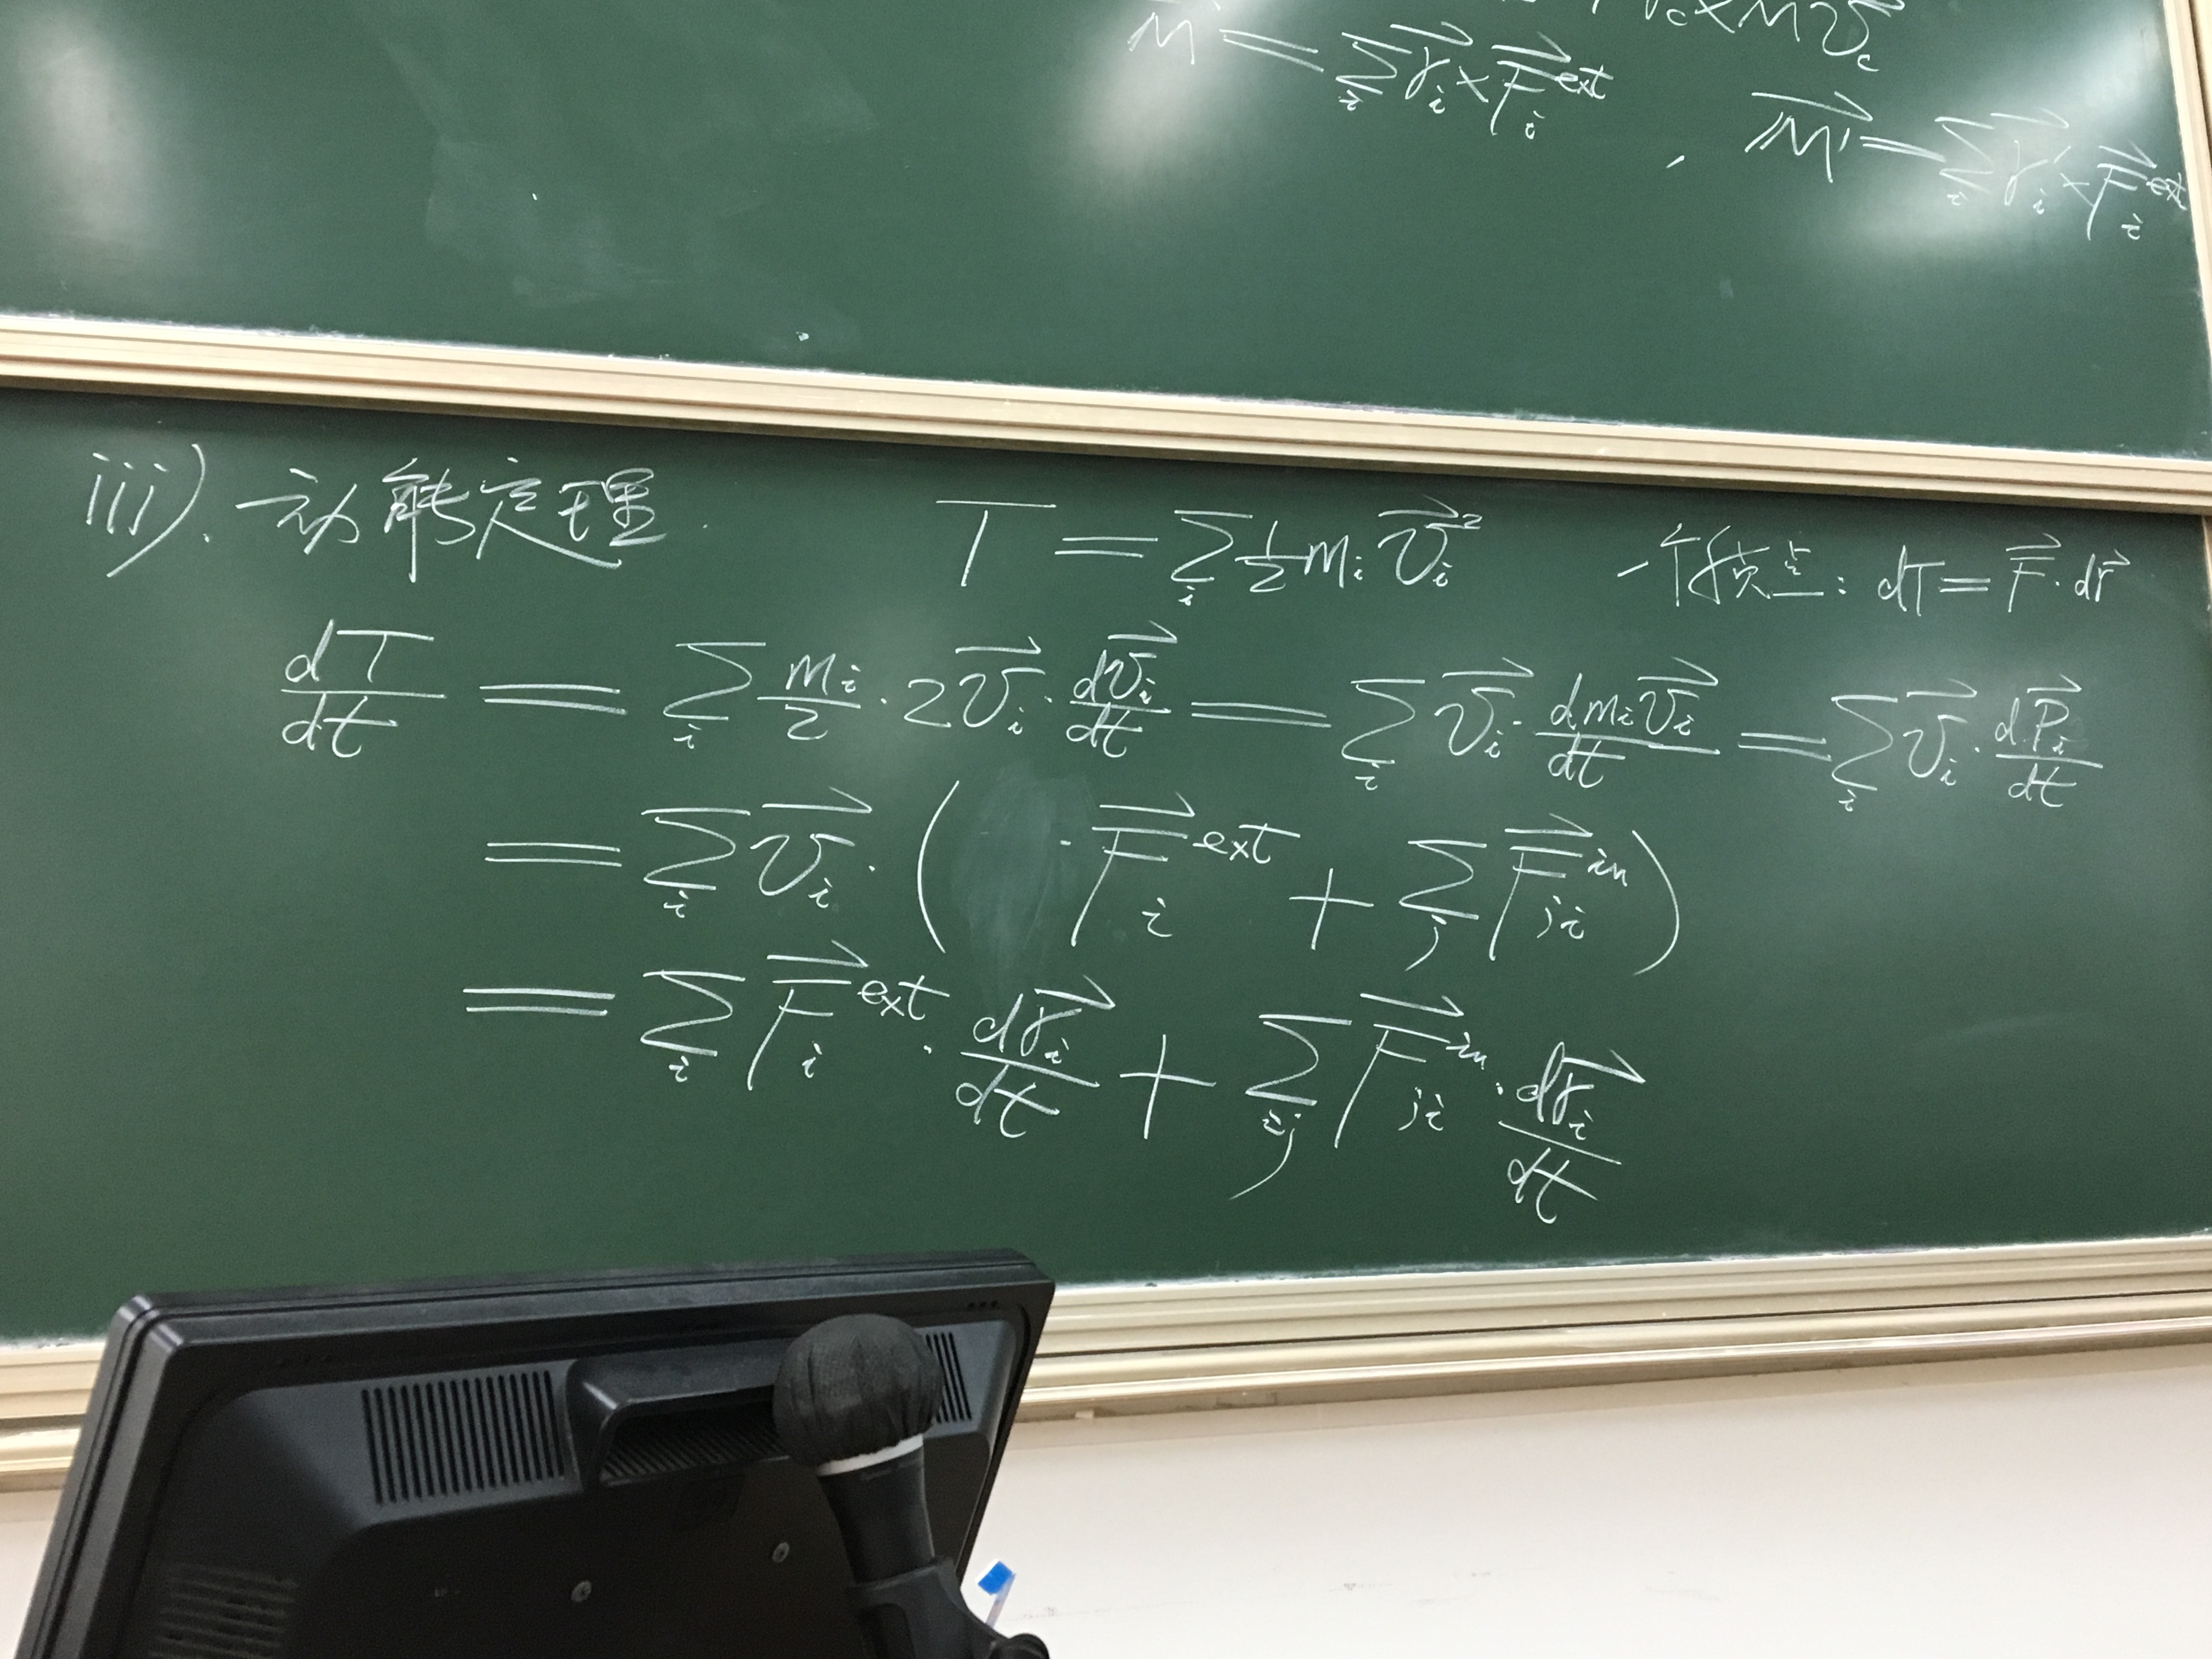 × M v⃗_c
M⃗ = Σ_i r⃗_i × F⃗_i^ext , M⃗' = Σ_i r⃗_i' × F⃗_i^ext
iii). 动能定理. T = Σ_i 1/2 m_i v⃗_i² 一个质点: dT = F⃗ · dr⃗
dT/dt = Σ_i m_i/2 · 2 v⃗_i · dv⃗_i/dt = Σ_i v⃗_i · dm_i v⃗_i/dt = Σ_i v⃗_i · dP⃗_i/dt
= Σ_i v⃗_i · ( F⃗_i^ext + Σ_j F⃗_ji^in )
= Σ_i F⃗_i^ext · dr⃗_i/dt + Σ_ij F⃗_ji^in · dr⃗_i/dt